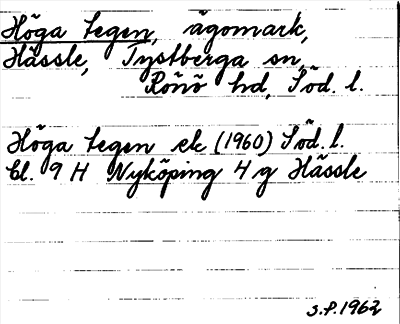 Höga tegen, ägomark,
Hässle, Tystberga sn,
Rönö hd, Söd. l.
Höga tegen ek (1960) Söd. l.
Bl. 9 H Nyköping 4 g Hässle
S.P. 1962